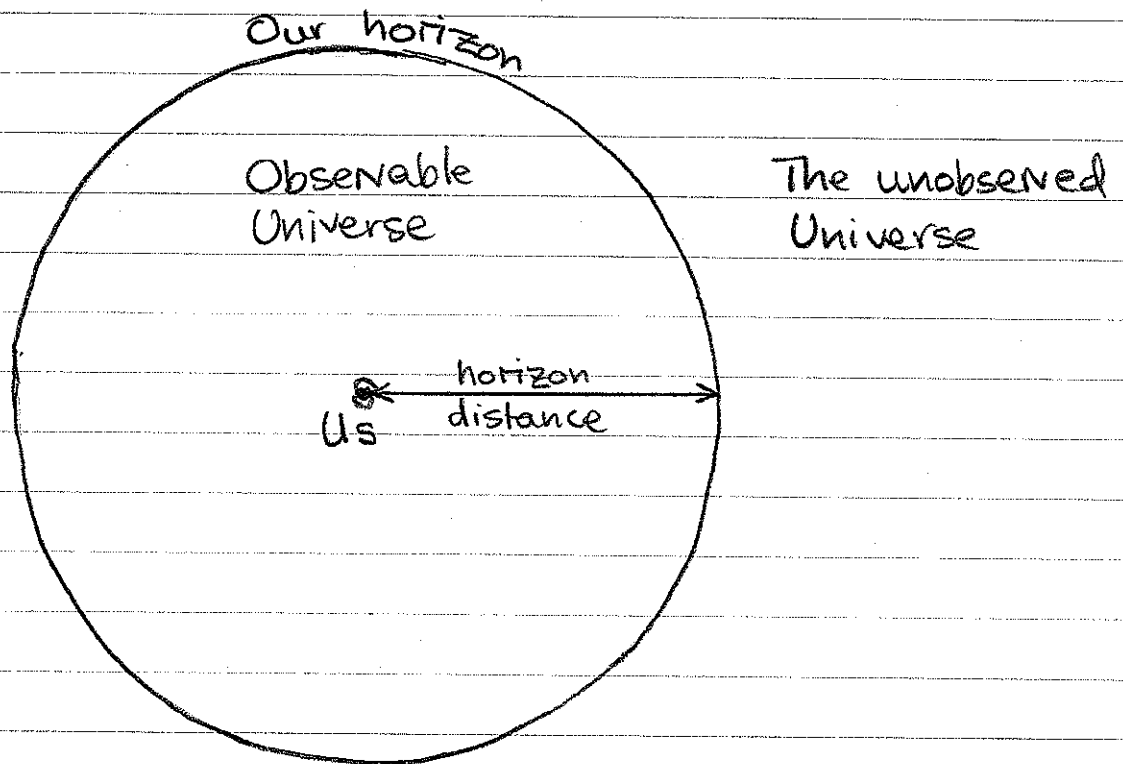 Our horizon
Observable
Universe
The unobserved
Universe
horizon
distance
Us